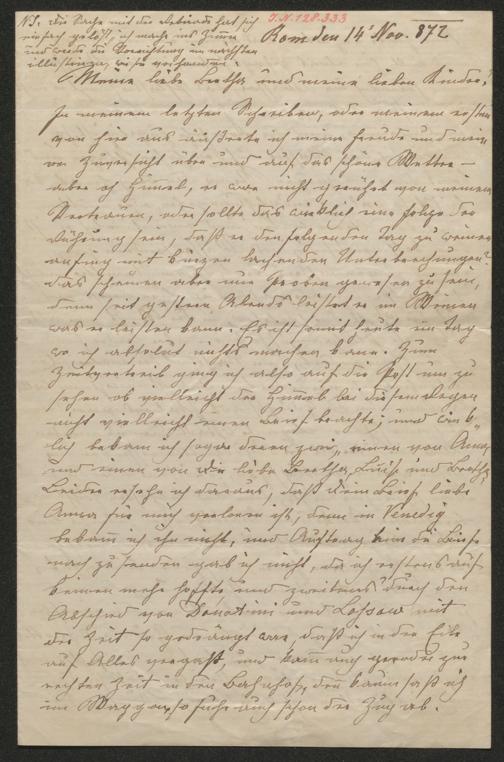 NS. Die Sache mit der Debirade hat sich
einfach gelöst, ich mache ins Zimmer
und werde die Vorrichtung im nächsten
I.N. 128.333
Rom den 14t Nov. 872
Meine liebe Bertha und meine lieben Kinder!
In meinem letzten Schreiben, oder meinem ersten
von hier aus äußerte ich meine Freude und meine
Zuversicht über und auf das schöne Wetter –
aber oh Himmel, er war nicht gerührt von meinem
Vertrauen, oder sollte das wirklich eine Folge der
Rührung sein, daß er den folgenden Tag zu weinen
anfing mit kurzen lachenden Unterbrechungen?
das scheinen aber nur Proben gewesen zu sein,
denn seit gestern Abends leistet er im Weinen
was er leisten kann. Es ist somit heute ein Tag
wo ich absolut nichts machen kann. Zum
Zeitvertreib ging ich also auf die Post um zu
sehen ob vielleicht der Himmel bei diesem Regen
nicht vielleicht einen Brief brachte, und wirk„
lich bekam ich sogar deren zwei, einen von Anna
und einen von dir liebe Bertha, Luise und Bertha.
Leider ersehe ich daraus, daß dein Brief liebe
Anna für mich verloren ist, denn in Venedig
bekam ich ihn nicht, und Auftrag mir die Briefe
nach zu senden gab ich nicht, da ich erstens auf
keinen mehr hoffte und zweitens durch den
Abschied von Donatini und Lossow mit
der Zeit so gedrängt war, daß ich in der Eile
auf Alles vergaß, und kam auch gerade zur
rechten Zeit in den Bahnhof, denn kaum saß ich
im Waggon so fuhr auch schon der Zug ab.